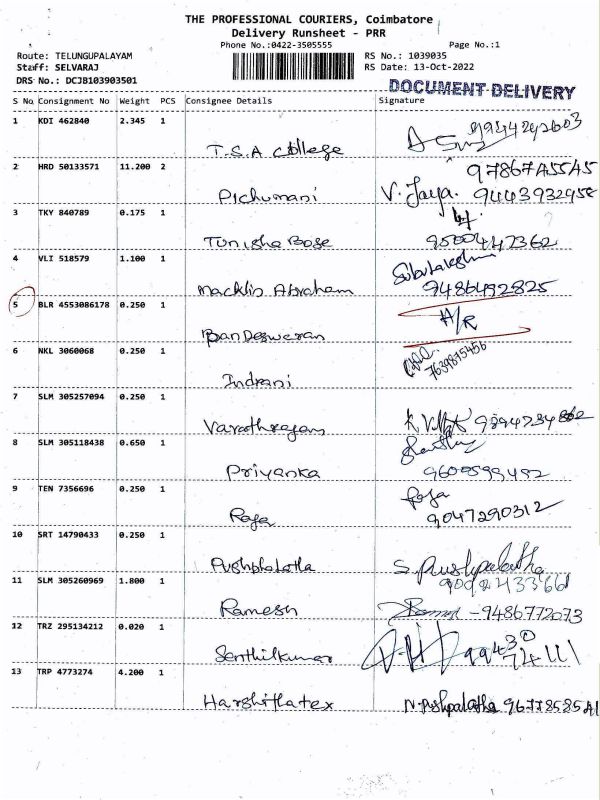 THE PROFESSIONAL COURIERS, Coimbatore
Delivery Runsheet - PRR
Phone No.:0422-3505555 Page No.:1
Route: TELUNGUPALAYAM RS No.: 1039035
Staff: SELVARAJ RS Date: 13-Oct-2022
DRS No.: DCJB103903501
DOCUMENT DELIVERY
S No Consignment No Weight PCS Consignee Details Signature
1 KDI 462840 2.345 1
T.S.A College
2 HRD 50133571 11.200 2
Pichumani V. Jaya.
3 TKY 840789 0.175 1
Tunisha Bose
4 VLI 518579 1.100 1
Macklin Abraham 9486492825
5 BLR 4553086178 0.250 1
A/R
6 NKL 3060068 0.250 1
7639875456
Indrani
7 SLM 305257094 0.250 1
Varathrajan
8 SLM 305118438 0.650 1
Priyanka 9600599492
9 TEN 7356696 0.250 1
Raja
Raja 9047290312
10 SRT 14790433 0.250 1
Pushphalatha S. Pushpalatha
11 SLM 305260969 1.800 1
Ramesh -9486772073
12 TRZ 295134212 0.020 1
Senthilkumar 99430 74111
13 TRP 4773274 4.200 1
Harshitatex N. Pushpalatha